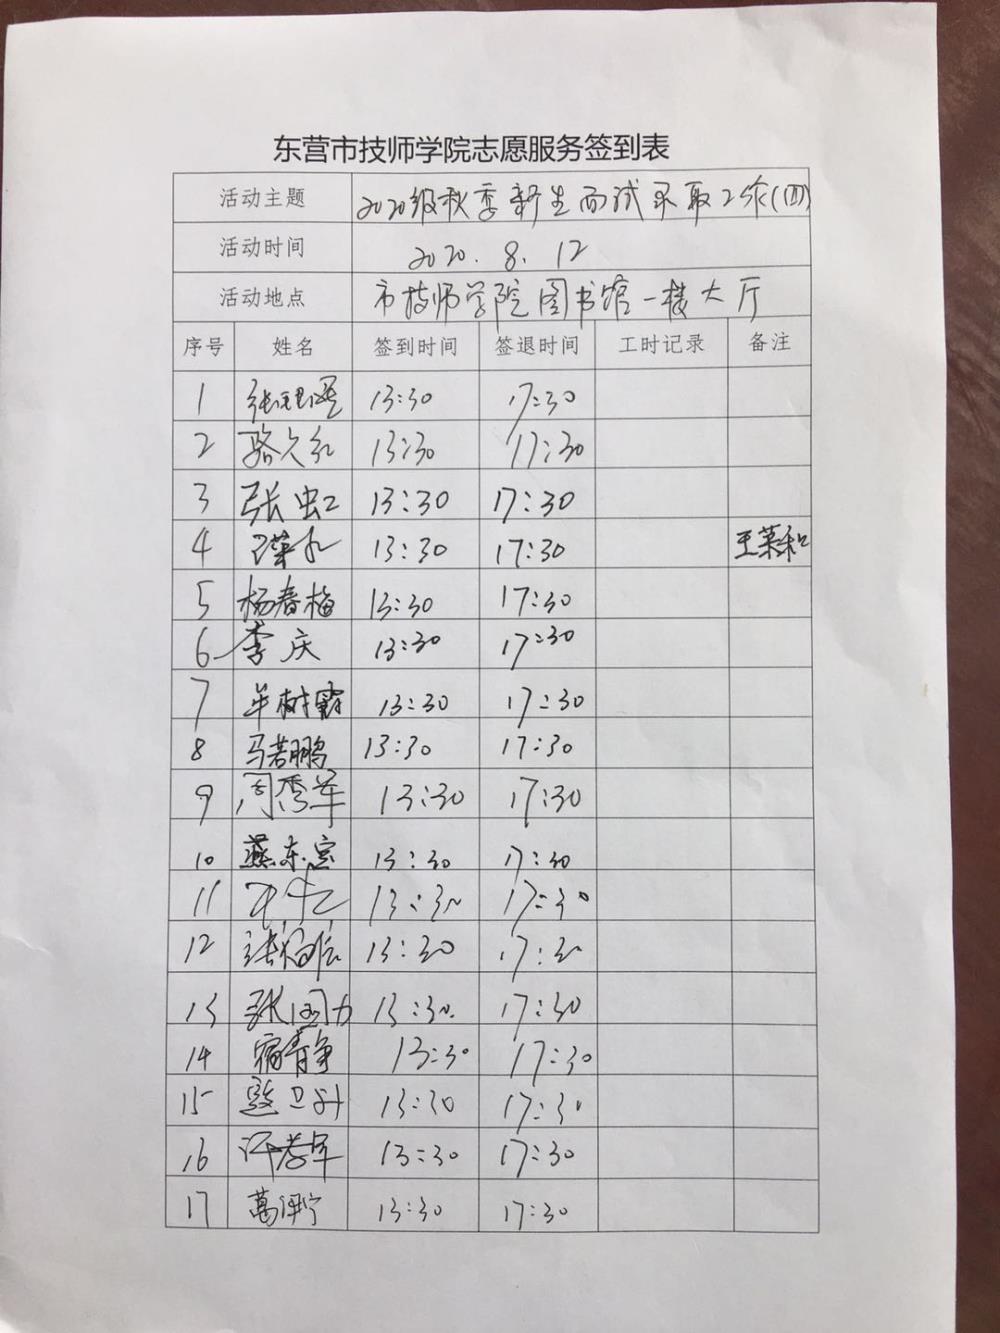 东营市技师学院志愿服务签到表
活动主题 2020级秋季新生面试录取工作(四)
活动时间 2020.8.12
活动地点 市技师学院图书馆一楼大厅
序号 姓名 签到时间 签退时间 工时记录 备注
1 13:30 17:30
2 13:30 17:30
3 张虹 13:30 17:30
4 13:30 17:30 王荣和
5 杨春梅 13:30 17:30
6 李庆 13:30 17:30
7 牟树霜 13:30 17:30
8 马若鹏 13:30 17:30
9 周秀军 13:30 17:30
10 燕东宝 13:30 17:30
11 13:30 17:30
12 13:30 17:30
13 张国力 13:30. 17:30
14 宿青静 13:30 17:30
15 13:30 17:30
16 13:30 17:30
17 13:30 17:30